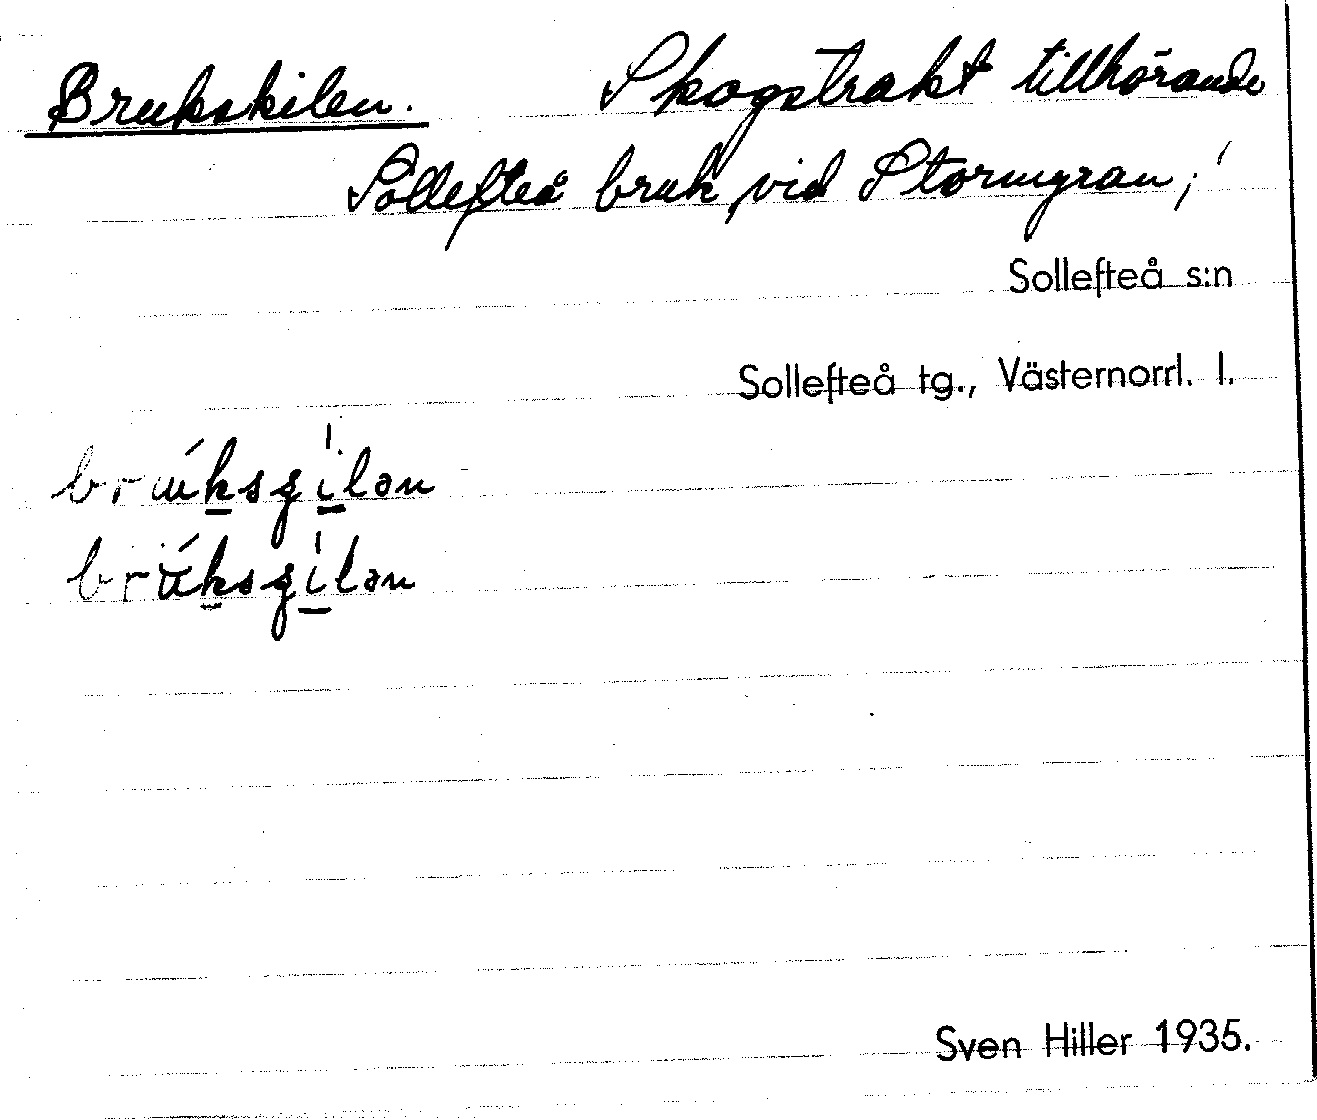 Brukskilen. Skogstrakt tillhörande
Sollefteå bruk, vid Stormyran;
Sollefteå s:n
Sollefteå tg., Västernorrl. l.
Sven Hiller 1935.